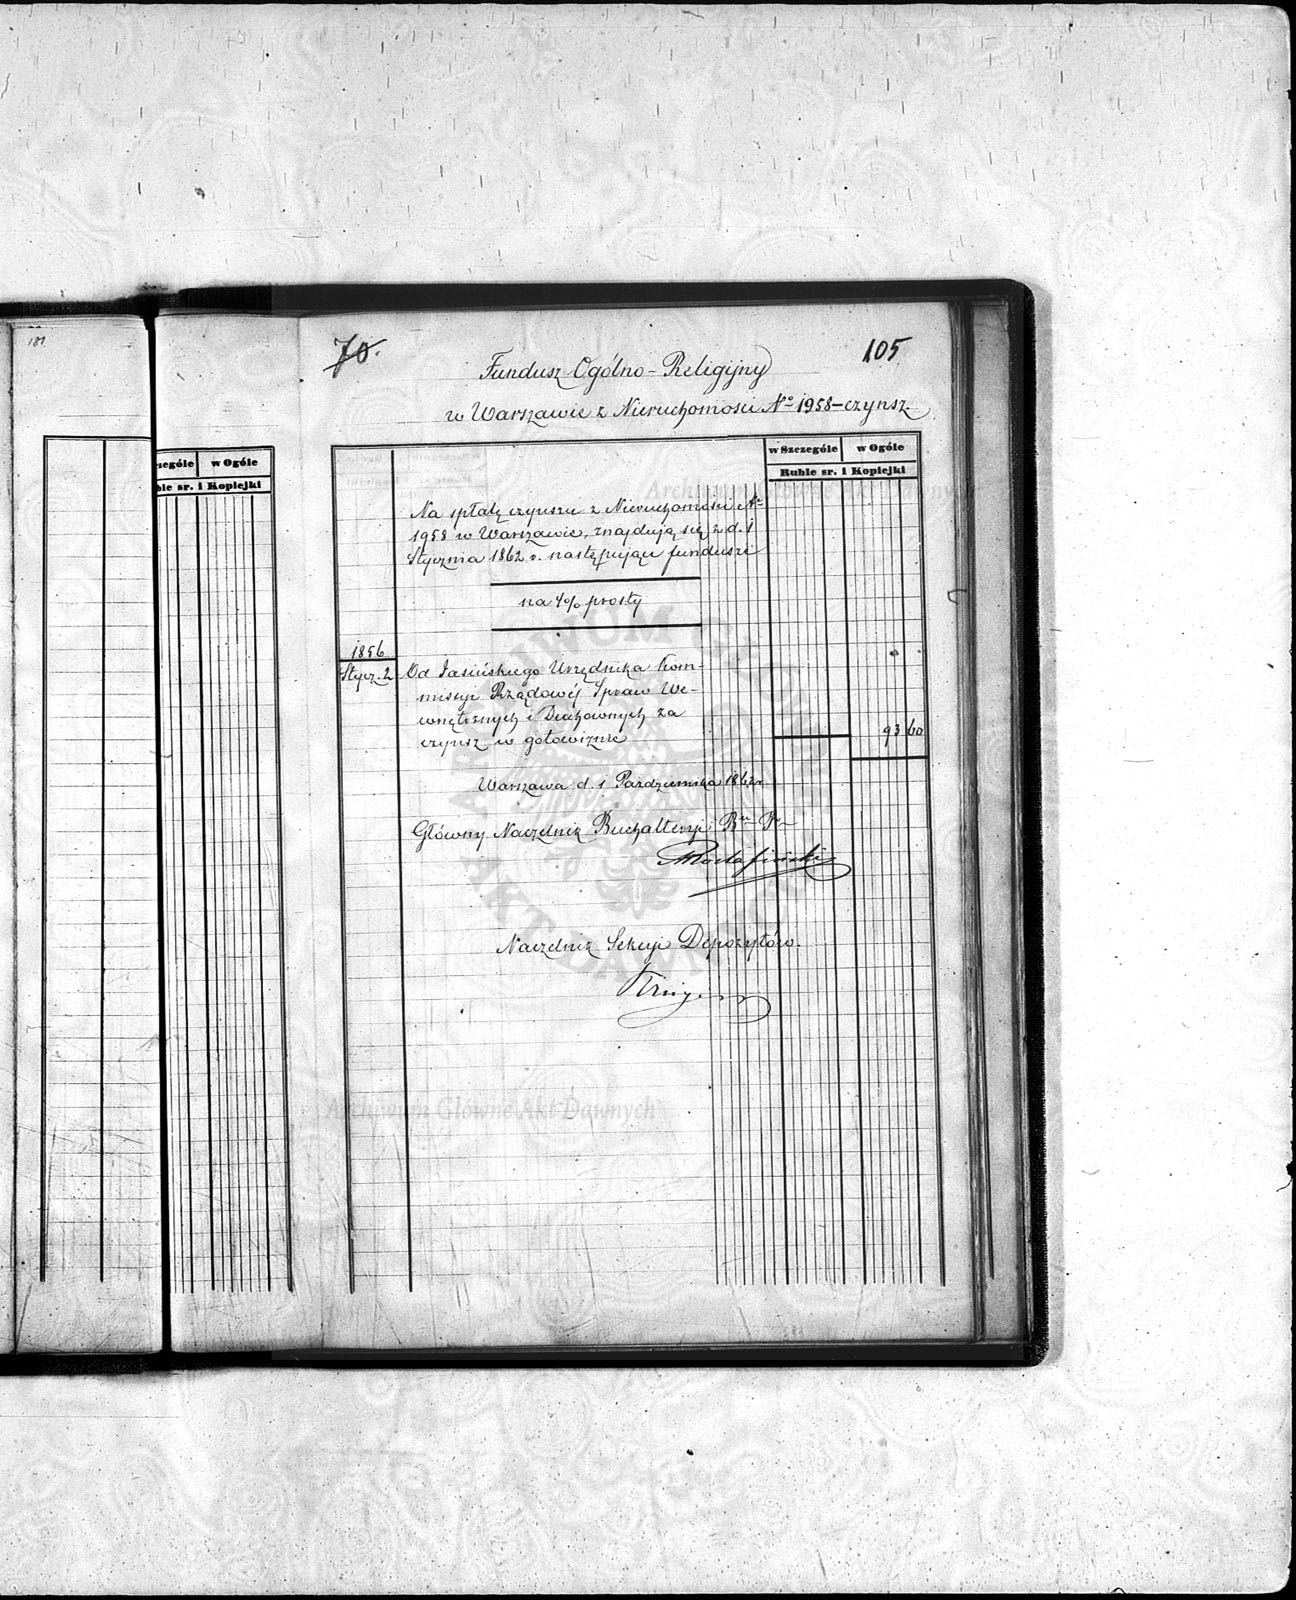 187
zególe w Ogóle
ble sr. i Kopiejki
70.
105
Fundusz Ogólno-Religijny
w Warszawie z Nieruchomości No 1958-czynsz.
w Szczególe w Ogóle
Ruble sr. i Kopiejki
Na spłatę czynszu z Nieruchomości No
1958 w Warszawie, znajdują się z d. 1
Stycznia 1862 r. następujące fundusze
na 4% prosty
1856
Stycz. 2 Od Jasińskiego Urzędnika Kom-
missyi Rządowéj Spraw We-
wnętrznych i Duchownych za
czynsz w gotowiznie 93 60
Warszawa d. 1 Października 1862 r.
Główny Naczelnik Buchalteryi
Naczelnik Sekcyi Depozytów.
Archiwum Główne Akt Dawnych
Archiwum Główne Akt Dawnych
ARCHIWUM GŁÓWNE AKT DAWNYCH